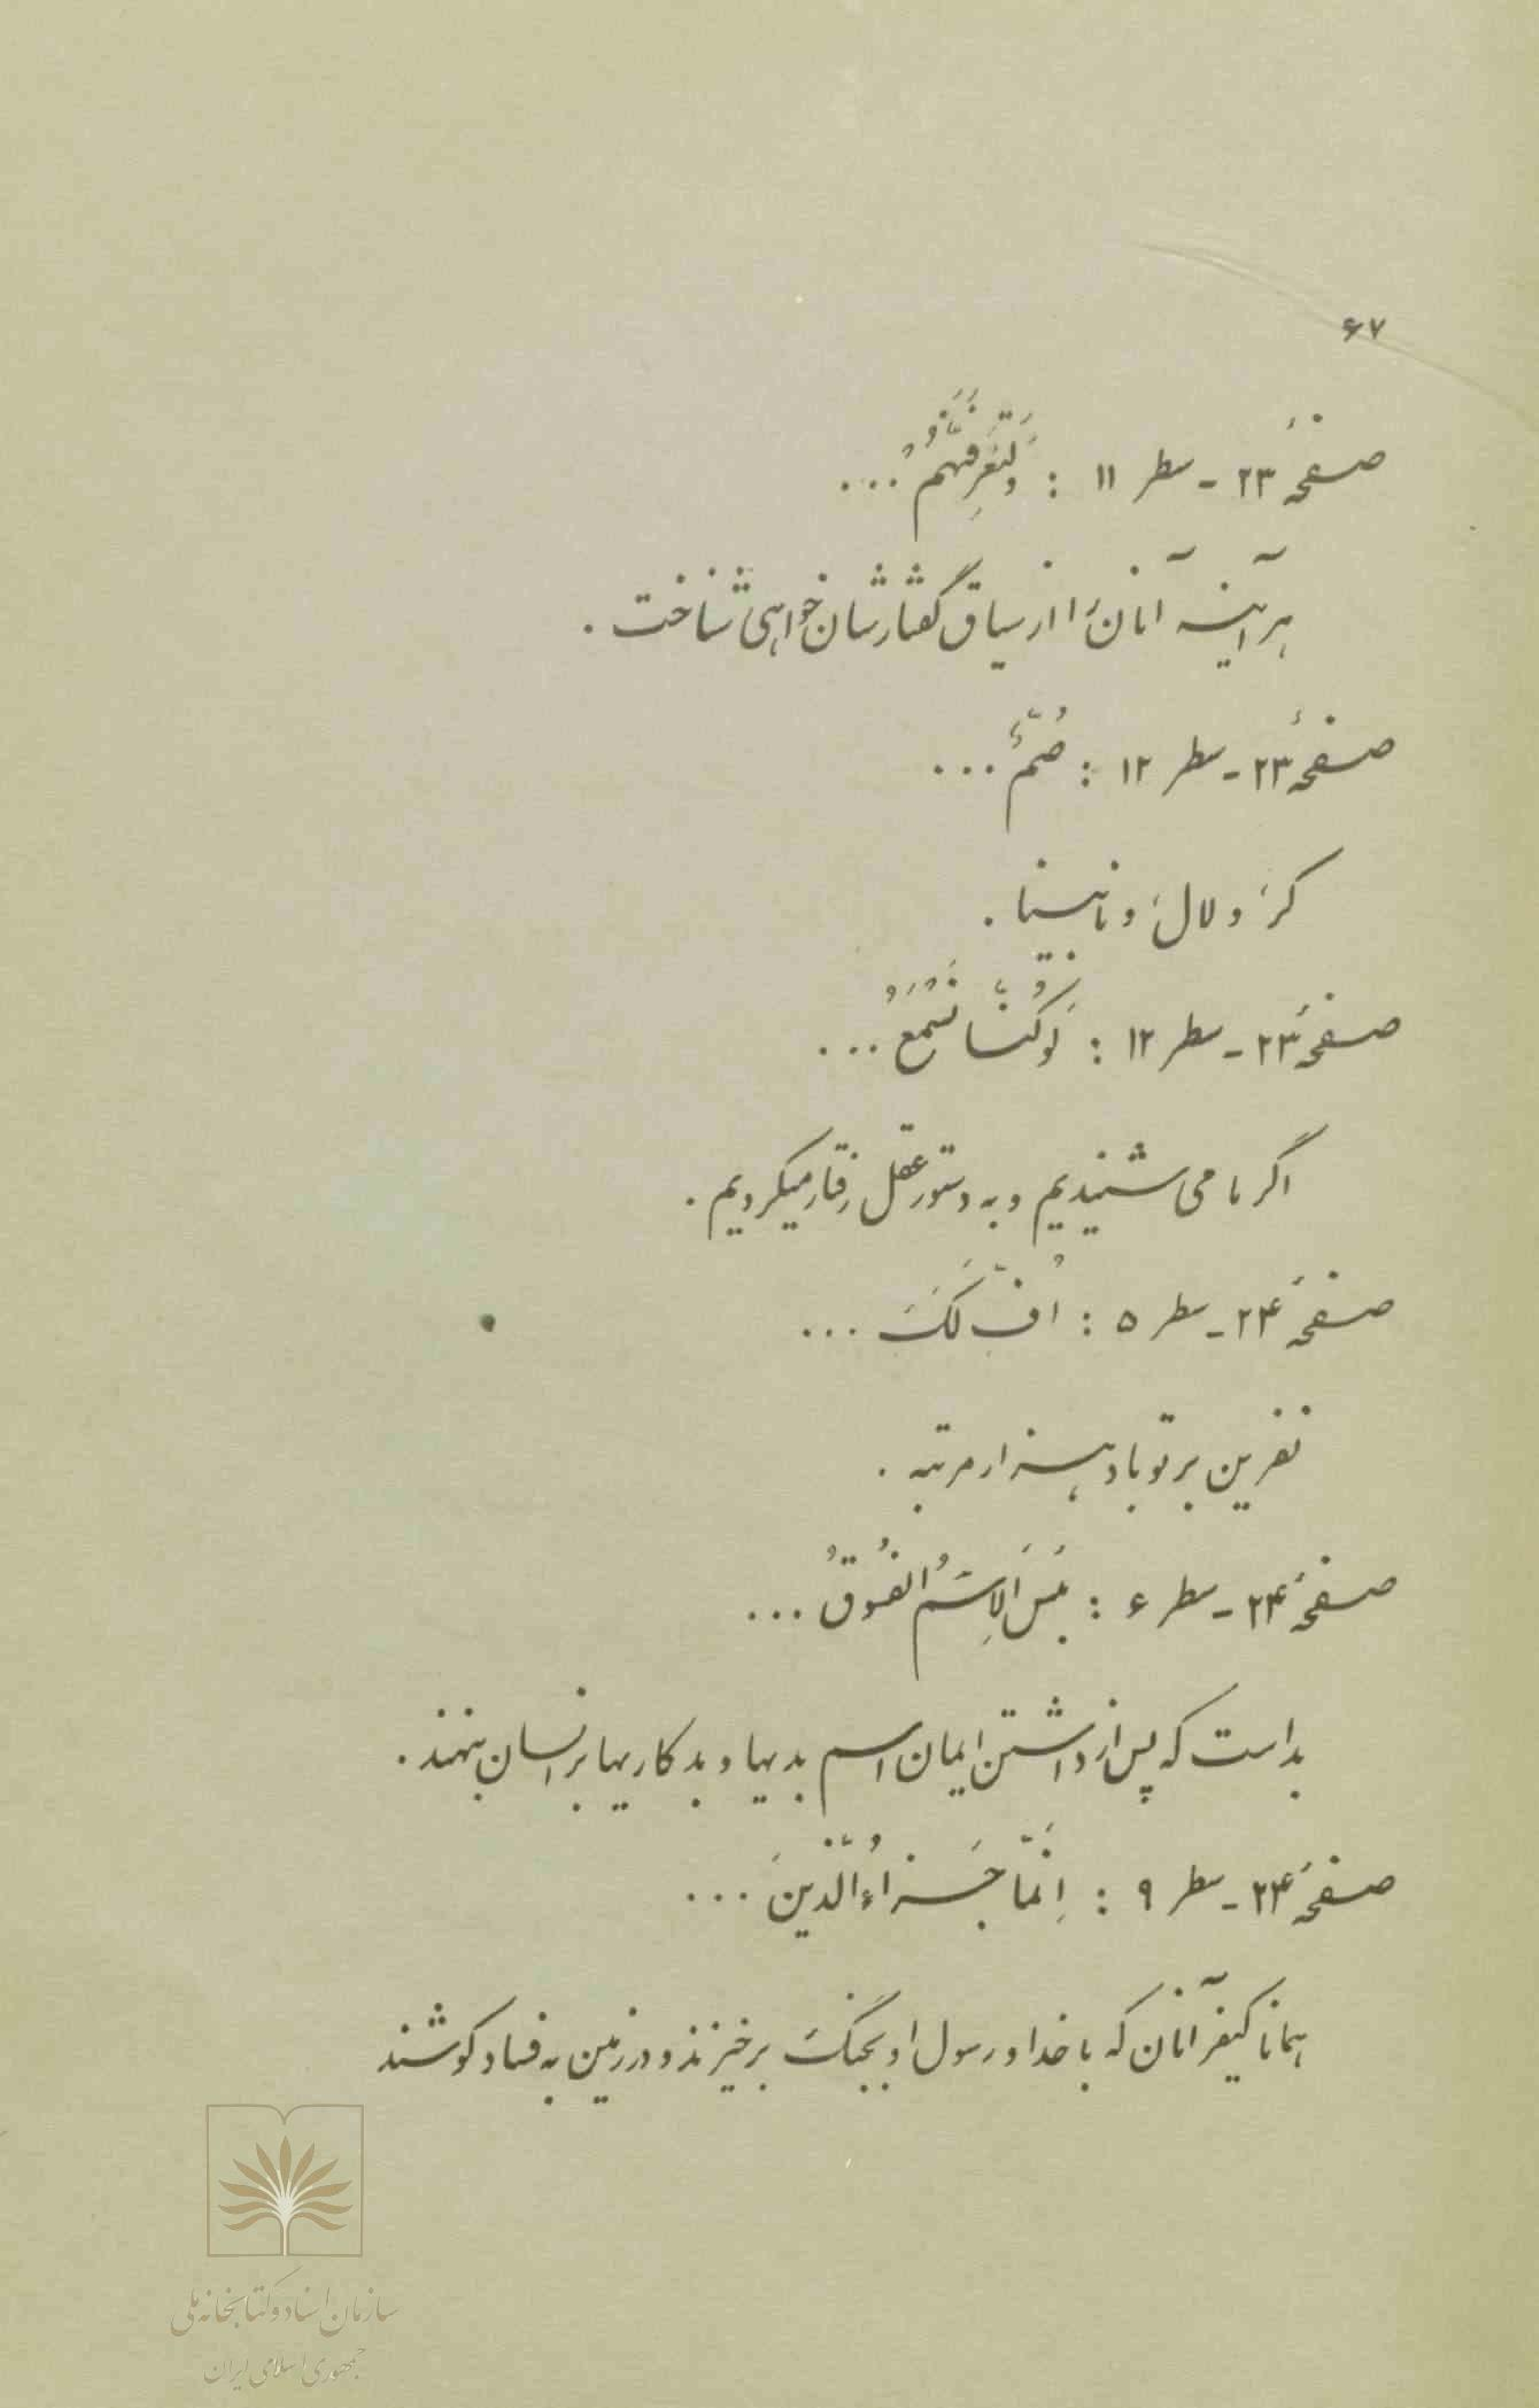 ۶۷
صفحهٔ ۲۳ - سطر ۱۱ : وَلَتَعْرِفَنَّهُمْ ...
هرآینه آنان را از سیاق گفتارشان خواهی شناخت .
صفحهٔ ۲۳ - سطر ۱۲ : صُمٌّ ...
کر و لال و نابینا .
صفحهٔ ۲۳ - سطر ۱۲ : لَوْ كُنَّا نَسْمَعُ ...
اگر ما می شنیدیم و به دستور عقل رفتار میکردیم .
صفحهٔ ۲۴ - سطر ۵ : اُفٍّ لَكَ ...
نفرین بر تو باد هزار مرتبه .
صفحهٔ ۲۴ - سطر ۶ : بِئْسَ الاِسْمُ الفُسُوقُ ...
بد است که پس از داشتن ایمان اسم بدیها و بدکاریها بر انسان بنهند .
صفحهٔ ۲۴ - سطر ۹ : اِنَّمَا جَزاءُ الَّذینَ ...
همانا کیفر آنان که با خدا و رسول او بجنگ برخیزند و در زمین به فساد کوشند
سازمان اسناد و کتابخانه ملی
جمهوری اسلامی ایران